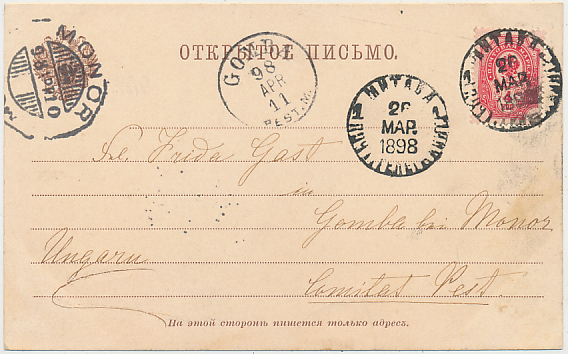 ОТКРЫТОЕ ПИСЬМО.
MONOR
GOMBA
98
APR
11
PEST. M.
МИТАВА
29
МАР.
1898
МИТАВА
МАР.
Frl. Frida Gast
in
Gomba bei Monor
Ungarn
Comitat Pest.
На этой сторонѣ пишется только адресъ.